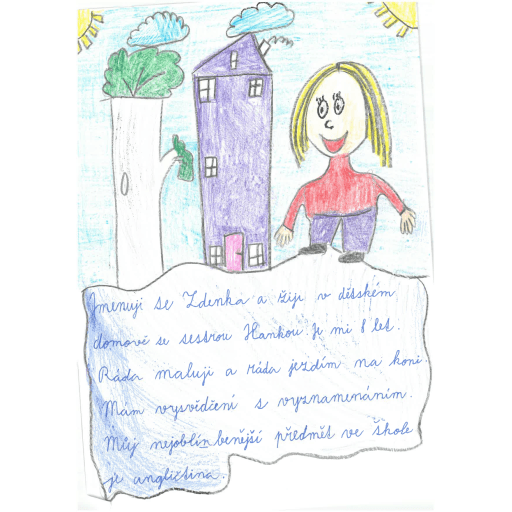 Jmenuji se Zdenka a žiji v dětském
domově se sestrou Hankou. Je mi 8 let.
Ráda maluji a ráda jezdím na koni.
Mám vysvědčení s vyznamenáním.
Můj nejoblínbenější předmět ve škole
je angličtina.